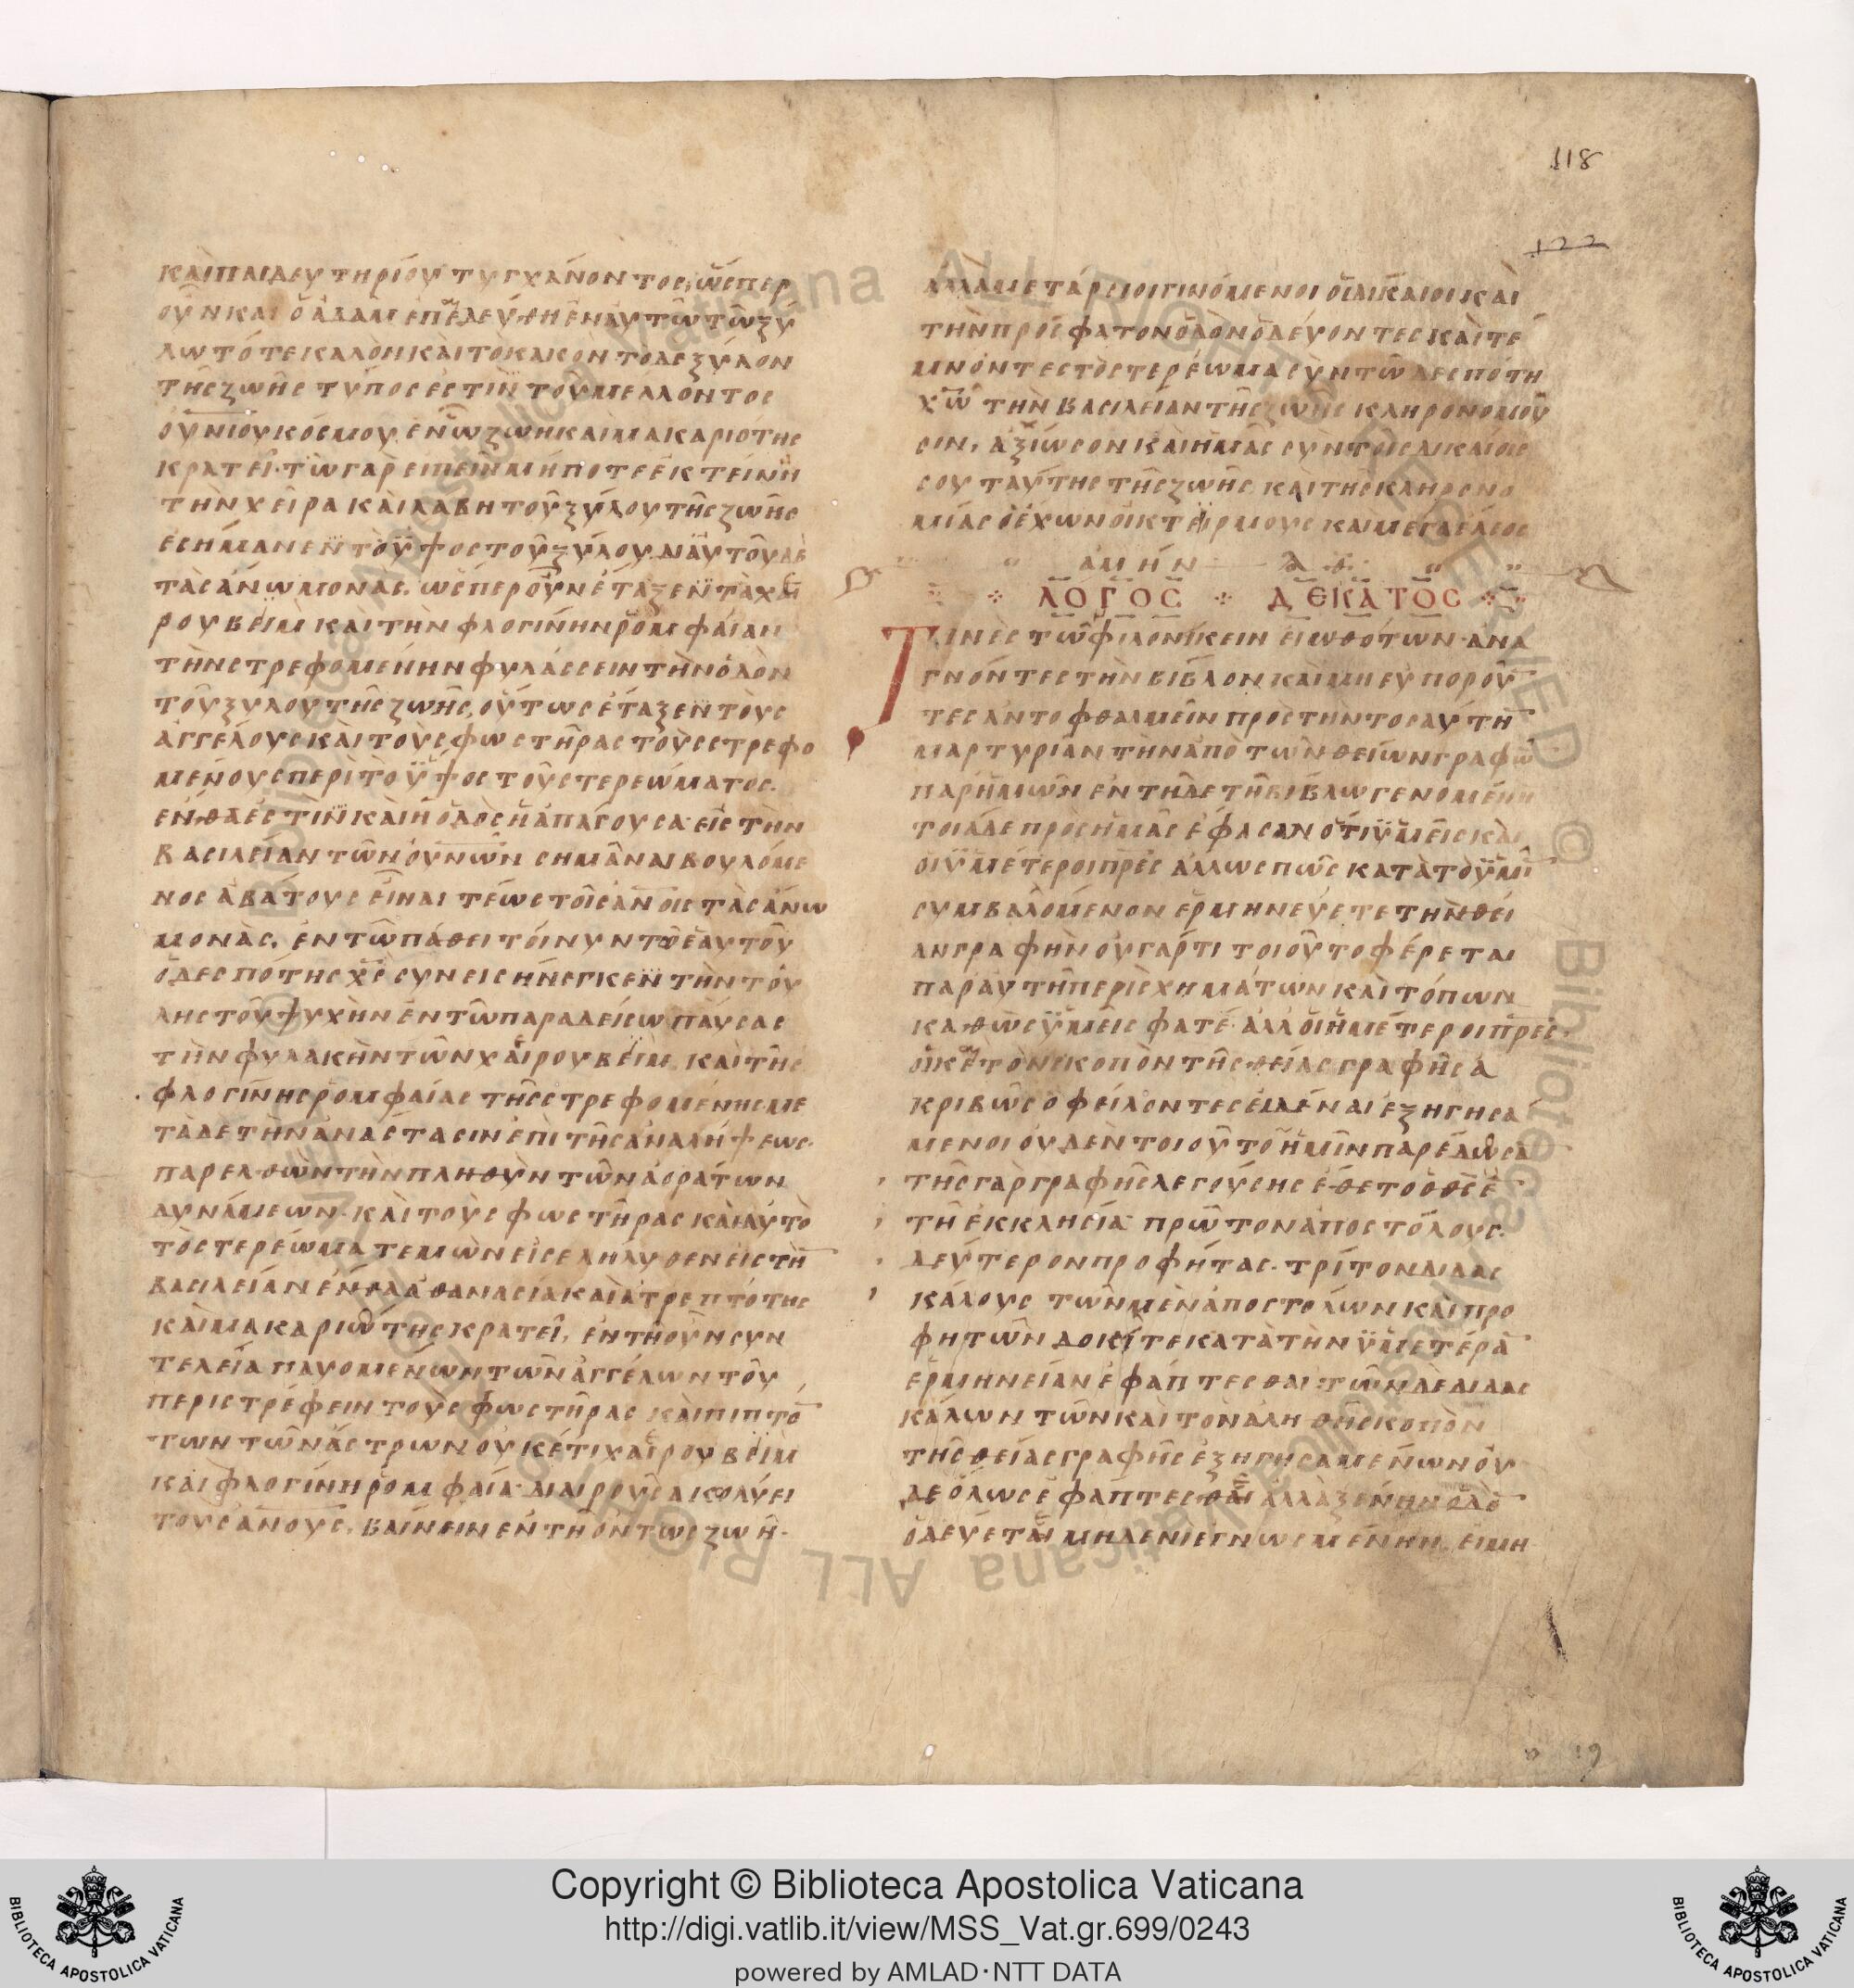 118
122
καὶ παιδευτηρίου τυγχάνοντος, ὥσπερ
οὖν καὶ ὁ ἀδὰμ ἐπεδεύθη ἐν αὐτῶ τῶ ξύ
λω τό τε καλὸν καὶ τὸ κακὸν τὸ δὲ ξύλον
τῆς ζωῆς τύπος ἐστὶν τοῦ μέλλοντος
οὐνίου κόσμου, ἐν ὧ ζωὴ καὶ μακαριότης
κρατεῖ· τὼ γὰρ εἰπεῖν μήποτε ἐκτείνη
τὴν χεῖρα καὶ λάβη τοῦ ξύλου τῆς ζωῆς
ἐσήμανεν τὸ ὕψος τοῦ ξύλου. δι' αὐτοῦ δὲ
τὰς ἄνω μονάς. ὥσπερ οὖν ἔταξεν τὰ χαι
ρουβεὶμ καὶ τὴν φλογίνην ῥομφαίαν
τὴν στρεφομένην φυλάσσειν τὴν ὁδὸν
τοῦ ξύλου τῆς ζωῆς, οὕτως ἔταξεν τοὺς
ἀγγέλους καὶ τοὺς φωστῆρας τοὺς στρεφο
μένους περὶ τὸ ὕψος τοῦ στερεώματος.
ἔνθα ἐστὶν καὶ ἡ ὁδὸς ἡ ἀπάγουσα εἰς τὴν
βασιλείαν τῶν οὐνῶν σημᾶναι βουλόμε
νος ἀβάτους εἶναι τέως τοῖς ἀνοις τὰς ἄνω
μονάς. ἐν τῶ πάθει τοίνυν τῶ ἑαυτοῦ
ὁ δεσπότης χς συνεισήνεγκεν τὴν τοῦ
ληστοῦ ψυχὴν ἐν τῶ παραδείσω παύσας
τὴν φυλακὴν τῶν χαιρουβεὶμ, καὶ τῆς
φλογίνης ῥομφαίας τῆς στρεφομένης με
τὰ δὲ τὴν ἀνάστασιν ἐπὶ τῆς ἀναλήψεως
παρελθὼν τὴν πληθὺν τῶν ἀοράτων
δυνάμεων· καὶ τοὺς φωστῆρας καὶ αὐτὸ
τὸ στερέωμα τεμὼν εἰσελήλυθεν εἰς τὴ
βασιλείαν ἔνθα ἀθανασία καὶ ἀτρεπτότης
καὶ μακαριώτης κρατεῖ, ἐν τῆ οὖν συν
τελεία παυομένων τῶν ἀγγέλων τοῦ
περιστρέφειν τοὺς φωστῆρας καὶ πιπτό
των τῶν ἄστρων οὐκέτι χαιρουβεὶμ
καὶ φλογίνη ῥομφαία διαιροῦσα κολύει
τοὺς ἀνους, βαίνειν ἐν τῆ ὄντως ζωῆ·
ἀλλὰ μετάρσιοι γινόμενοι οἱ δίκαιοι καὶ
τὴν πρόσφατον ὁδὸν ὁδεύοντες καὶ τέ
μνοντες τὸ στερέωμα σὺν τῶ δεσπότη
χω τὴν βασιλείαν τῆς ζωῆς κληρονομοῦ
σιν, ἀξίωσον καὶ ἡμᾶς σὺν τοῖς δικαίοις
σου ταύτης τῆς ζωῆς, καὶ τῆς κληρονο
μίας ὁ ἔχων οἰκτειρμοὺς καὶ μέγα ἔλεος
ἀμήν
ΛΟΓΟΣ ΔΕΚΑΤΟΣ
Τινὲς τῶ φιλονικεῖν εἰωθότων· ἀνα
γνόντες τὴν βίβλον καὶ μὴ εὐποροῦ
τες ἀντοφθαλμεῖν πρὸς τὴν τοσαύτη
μαρτυρίαν τὴν ἀπὸ τῶν θείων γραφῶ
παρ' ἡμῶν ἐν τῆδε τῆ βίβλω γενομένη
τοιάδε πρὸς ἡμᾶς ἔφασαν ὅτι ὑμεῖς καὶ
οἱ ὑμέτεροι πρες ἄλλως πως κατὰ τὸ ὑμῖ
συμβαλόμενον ἑρμηνεύετε τὴν θεί
αν γραφὴν οὐ γάρ τι τοιοῦτο φέρεται
παρ' αὐτῆ περὶ σχημάτων καὶ τόπων
καθὼς ὑμεῖς φατέ· ἀλλ' οἱ ἡμέτεροι πρες
τὸν σκοπὸν τῆς θείας γραφῆς ἀ
κριβῶς ὀφείλοντες εἰδέναι ἐξηγησά
μενοι οὐδὲν τοιοῦτο ἡμῖν παρέδωσα
τῆς γὰρ γραφῆς λεγούσης ἔθετο ὁ θς ἐ
τῆ ἐκκλησία· πρῶτον ἀποστόλους.
δεύτερον προφήτας. τρίτον διδας
κάλους τῶν μὲν ἀποστόλων καὶ προ
φητῶν δοκῖτε κατὰ τὴν ὑμετέρα
ἑρμηνείαν ἐφάπτεσθαι· τῶν δὲ διδας
κάλων τῶν καὶ τὸν ἀληθῆ σκοπὸν
τῆς θείας γραφῆς ἐξηγησαμένων οὐ
δὲ ὅλως ἐφάπτεσθε ἀλλὰ ξένην ὁδὸ
ὁδεύεται μηδενὶ ἐγνωσμένην, εἰ μὴ
19
Copyright © Biblioteca Apostolica Vaticana
http://digi.vatlib.it/view/MSS_Vat.gr.699/0243
powered by AMLAD·NTT DATA
BIBLIOTECA APOSTOLICA VATICANA
BIBLIOTECA APOSTOLICA VATICANA